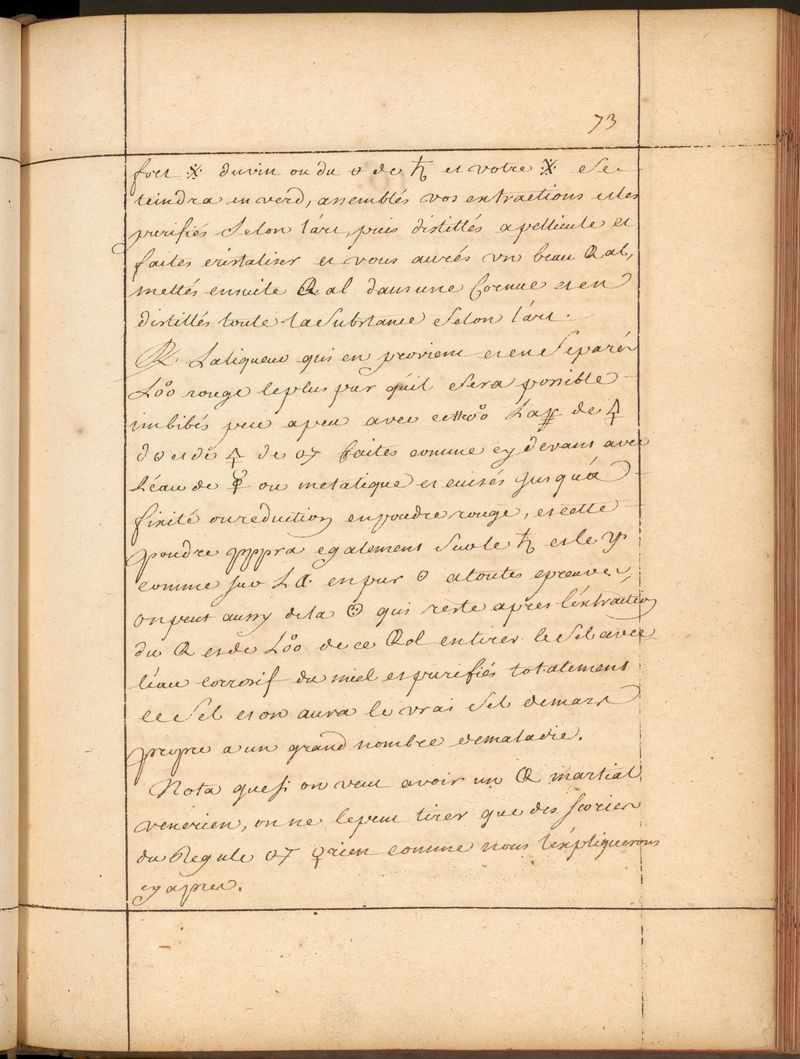 73
fort ※ du vin ou du ʊ de ♄ et votre ※ se
teindra en verd, assemblés vos extractions et les
purifiés Selon l'art, puis distillés a pellicule et
faites cristaliser et vous aurés vn beau al,
mettés ensuite al dans une Cornue et en
distillés toute la Substance Selon l'art.
La liqueur qui en provient et en Separés
L'oo rouge le plus pur qu'il Sera possible
imbibés peu a peu avec cette oo La de
de faites comme cy devant avec
L'éau de ☿ ou metalique et cuisés Jusqu'a
fixité ou reduction en poudre rouge, et cette
poudre également Sur le ♄ et le
comme sur L en pur ⊙ a toutes epreuves,
on peut aussy de la qui reste apres l'éxtraction
du et de L'oo de ce ol en tirer le Sel avec
l'éau corrosif du miel et purifiés totalement
ce Sel et on aura le vrai Sel de mars
propre a un grand nombre de maladie.
Nota que si on veut avoir un martial
venerien, on ne le peut tirer que des scories
du Regule ♂ ♀rien comme nous l'expliquerons
cy apres.